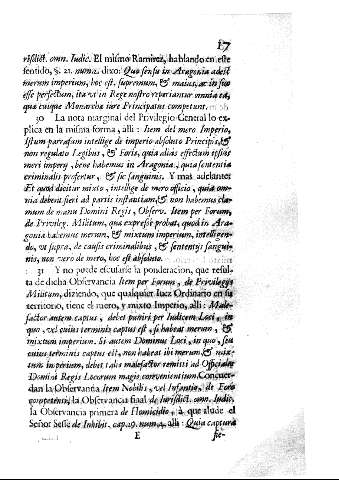 17
risdict. omn. Iudic. El mismo Ramirez, hablando en este
sentido, §. 21. num. 2. dixo: Quo sensu in Aragonia adest
merum imperium, hoc est, supremum, & maius, ac in suo
esse perfectum, ita vt in Rege nostro reperiantur omnia ea,
quæ cuique Monarchæ iure Principatus competunt.
30 La nota marginal del Privilegio General lo ex-
plica en la misma forma, alli: Item del mero Imperio,
Istum parrafum intellige de imperio absoluto Principis, &
non regulato Legibus, & Foris, quia aliàs effectum istius
meri imperij, bene habemus in Aragonia, quia sententia
criminalis profertur, & sic sanguinis. Y mas adelante:
Et quod dicitur mixto, intellige de mero officio, quia om-
nia debent fieri ad partis instantiam, & non habemus cla-
mum de manu Domini Regis, Observ. Item per Forum,
de Privileg. Militum, quæ expresse probat, quod in Ara-
gonia habemus merum, & mixtum imperium, intelligen-
do, vt supra, de causis criminalibus, & sententijs sangui-
nis, non vero de mero, hoc est absoluto.
31 Y no puede escusarse la ponderacion, que resul-
ta de dicha Observancia Item per Forum, de Privilegijs
Militum, diziendo, que qualquier Iuez Ordinario en su
territorio, tiene el mero, y mixto Imperio, alli: Male-
factor autem captus, debet puniri per Iudicem Loci, in
quo, vel cuius terminis captus est, si habeat merum, &
mixtum imperium. Si autem Dominus Loci, in quo, seu
cuius terminis captus est, non habeat ibi merum, & mix-
tum imperium, debet talis malefactor remitti ad Officiales
Domini Regis Locorum magis convenientium. Concuer-
dan la Observancia Item Nobilis, vel Infantio, de Foro
competenti, la Observancia final de Iurisdict. omn. Iudic.
la Observancia primera de Homicidio, à que alude el
Señor Sesse de Inhibit. cap. 19. num. 4. alli: Quia captura
E